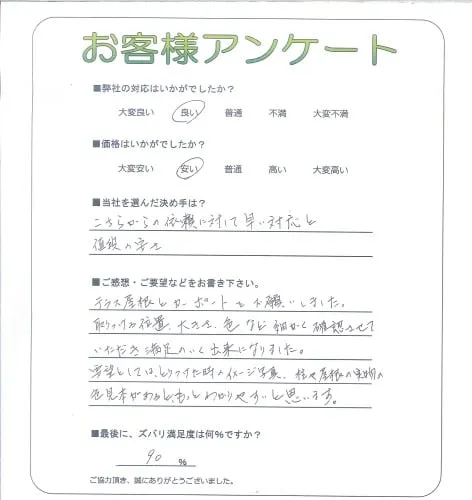 お客様アンケート
■弊社の対応はいかがでしたか？
大変良い 良い 普通 不満 大変不満
■価格はいかがでしたか？
大変安い 安い 普通 高い 大変高い
■当社を選んだ決め手は？
こちらからの依頼に対して早い対応と
値段の安さ
■ご感想・ご要望などをお書き下さい。
テラス屋根とカーポートをお願いしました。
取りつけの位置、大きさ、色など細かく確認させて
いただき満足のいく出来になりました。
要望としては、とりつけた時のイメージ写真、柱や屋根の実物の
色見本があるともっとわかりやすいと思います。
■最後に、ズバリ満足度は何%ですか？
90 %
ご協力頂き、誠にありがとうございました。